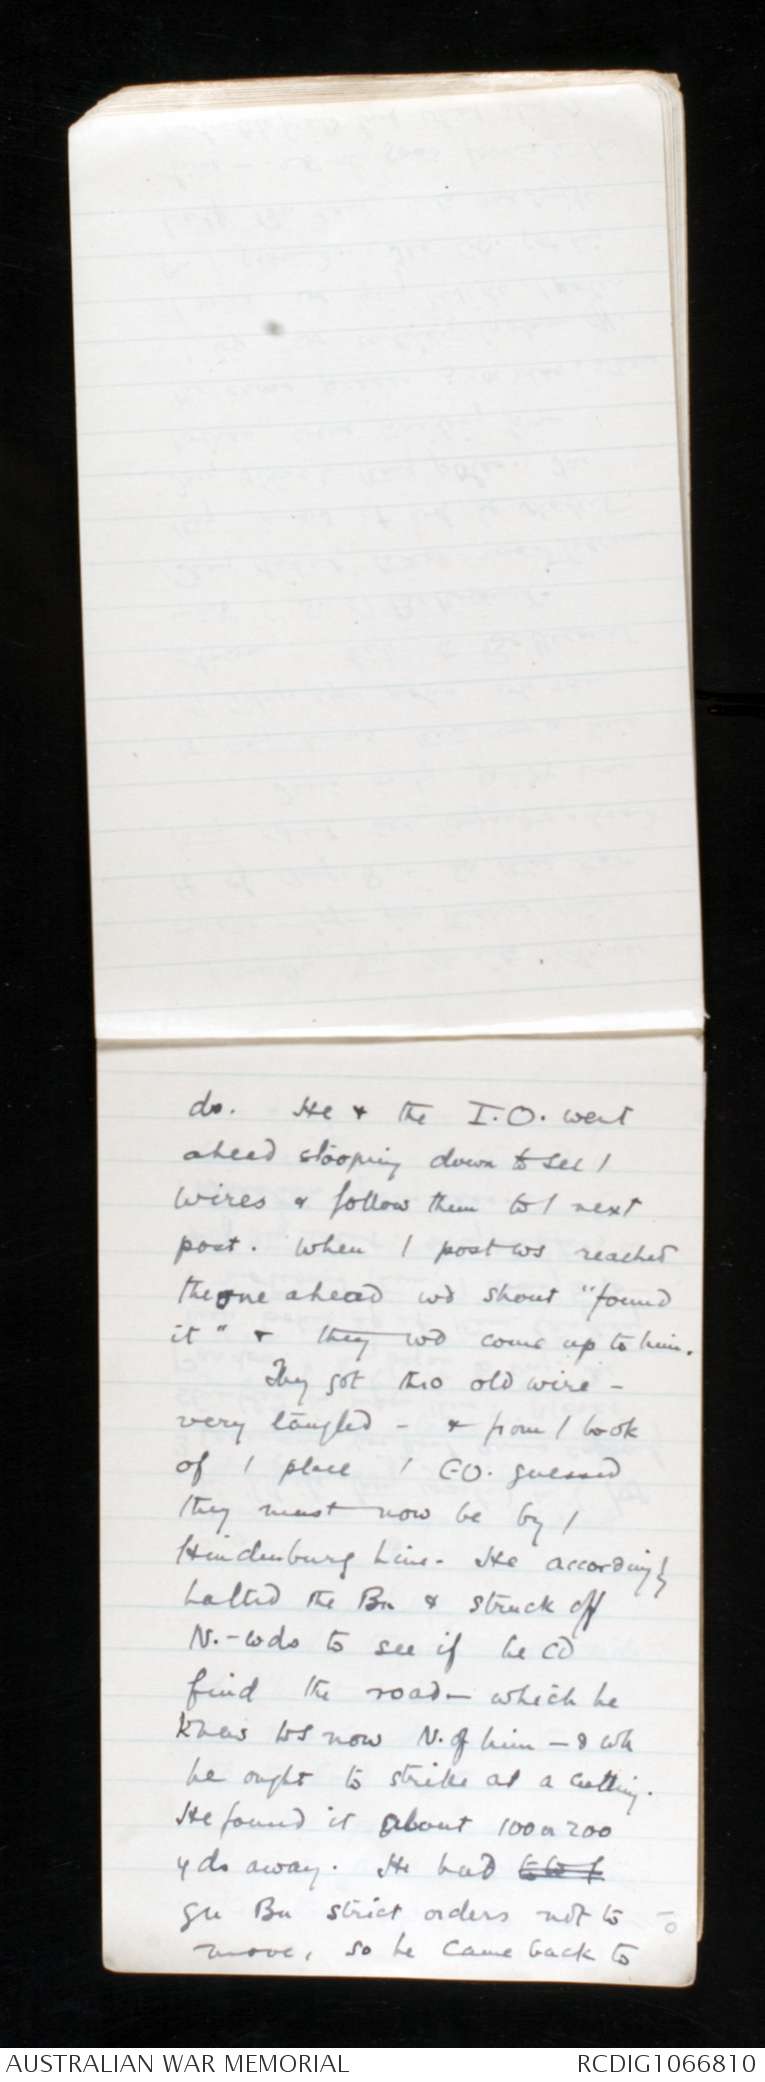 do. He & the I.O. went
ahead stooping down to see /
wires & follow them to / next
post. When / post ws reached
the one ahead wd shout "found
it" & they wd come up to him.
They got tho old wire -
very tangled - & from / look
of / place / C.O. guessed
they must now be by /
Hindenburg Line. He accordingly
halted the Bn & struck off
N.-wds to see if he cd
find the road - which he
knew ws now N. of him - & wh
he ought to strike at a cutting.
He found it about 100 or 200
yds away. He had
gn Bn strict orders not to
move, so he came back to
AUSTRALIAN WAR MEMORIAL
RCDIG1066810